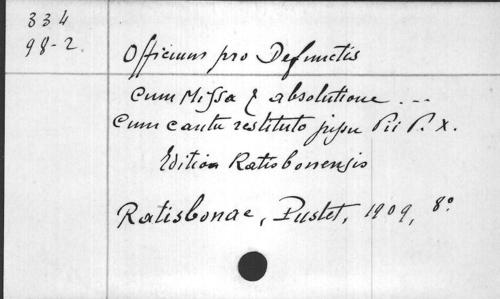 334
98-2.
Officium pro Defunctis
cum Missa & absolutione ...
cum cantu restituto jussu Pii P. X.
Editio Ratisbonensis
Ratisbonae, Pustet, 1909, 8°